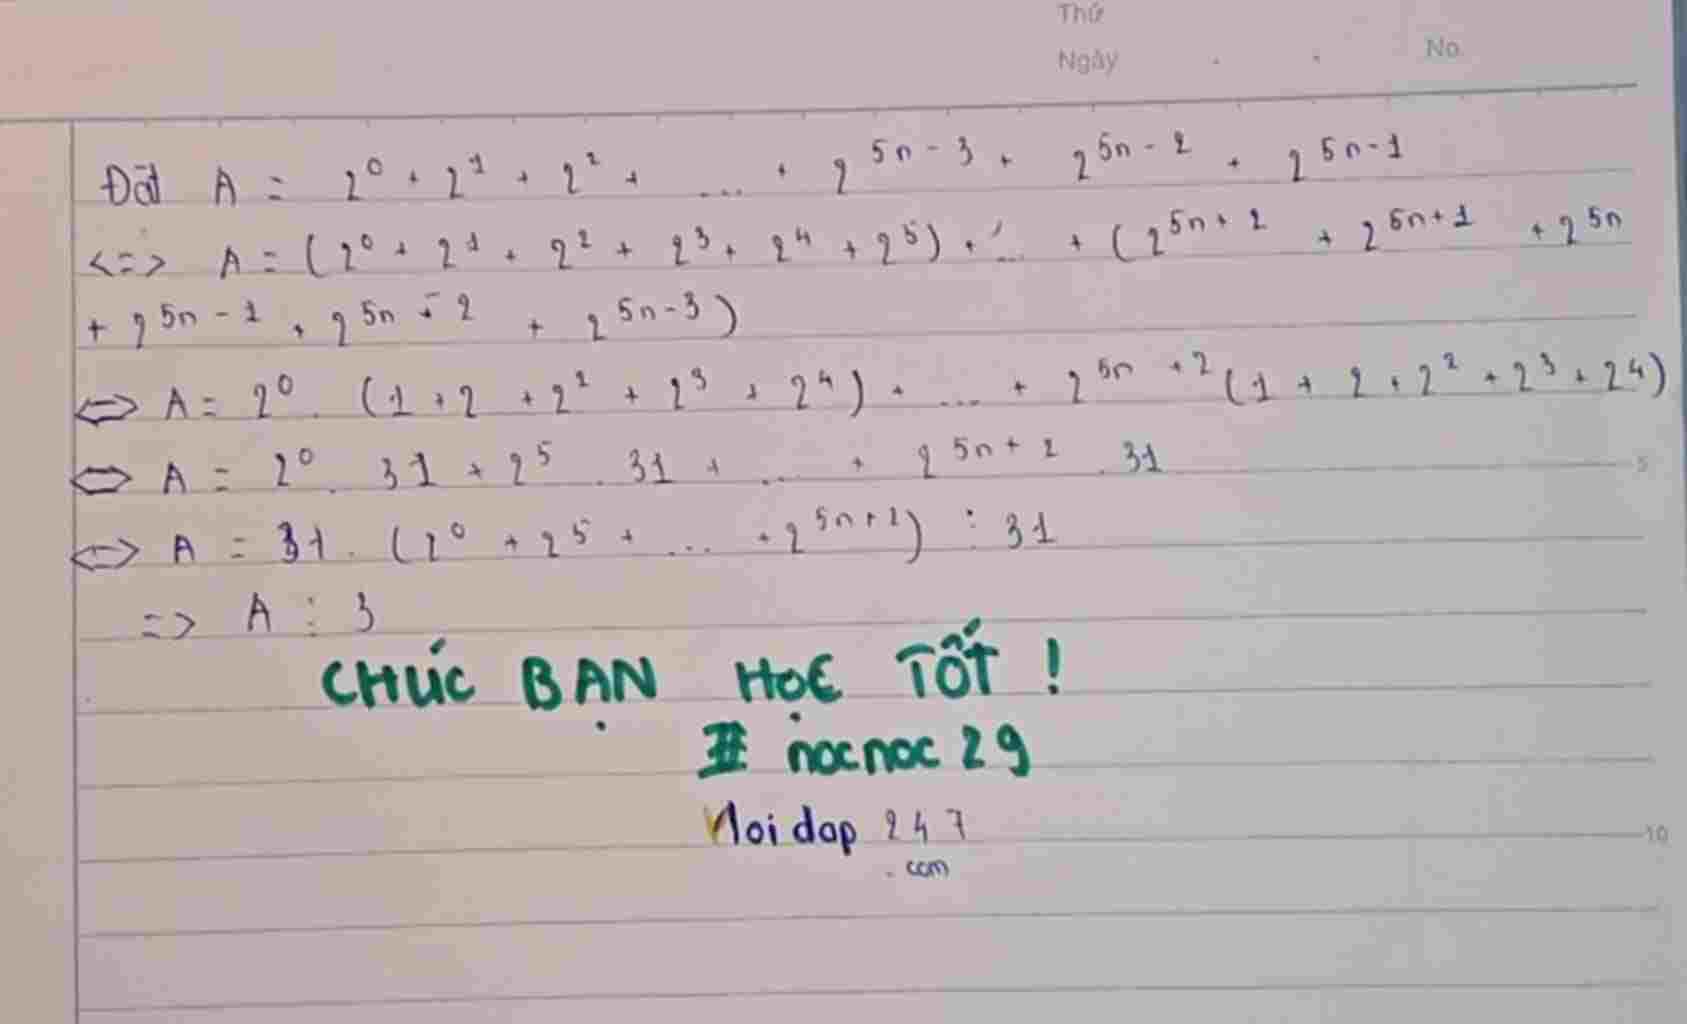 Thứ
Ngày . . No.
Đặt A = 2⁰ + 2¹ + 2² + ... + 2⁵ⁿ⁻³ + 2⁵ⁿ⁻² + 2⁵ⁿ⁻¹
<=> A = (2⁰ + 2¹ + 2² + 2³ + 2⁴ + 2⁵) + ... + (2⁵ⁿ⁺² + 2⁵ⁿ⁺¹ + 2⁵ⁿ
+ 2⁵ⁿ⁻¹ + 2⁵ⁿ⁻² + 2⁵ⁿ⁻³)
<=> A = 2⁰ . (1 + 2 + 2² + 2³ + 2⁴) + ... + 2⁵ⁿ⁺² (1 + 2 + 2² + 2³ + 2⁴)
<=> A = 2⁰ . 31 + 2⁵ . 31 + ... + 2⁵ⁿ⁺² . 31
5
<=> A = 31 . (2⁰ + 2⁵ + ... + 2⁵ⁿ⁺²) ⋮ 31
=> A ⋮ 3
CHÚC BẠN HỌC TỐT !
# nocnoc 29
Hoidap 247
10
.com